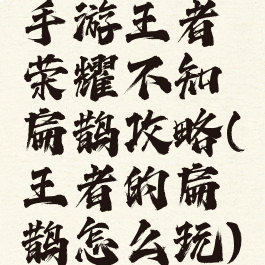 手游王者
荣耀不知
扁鹊攻略(
王者的扁
鹊怎么玩)